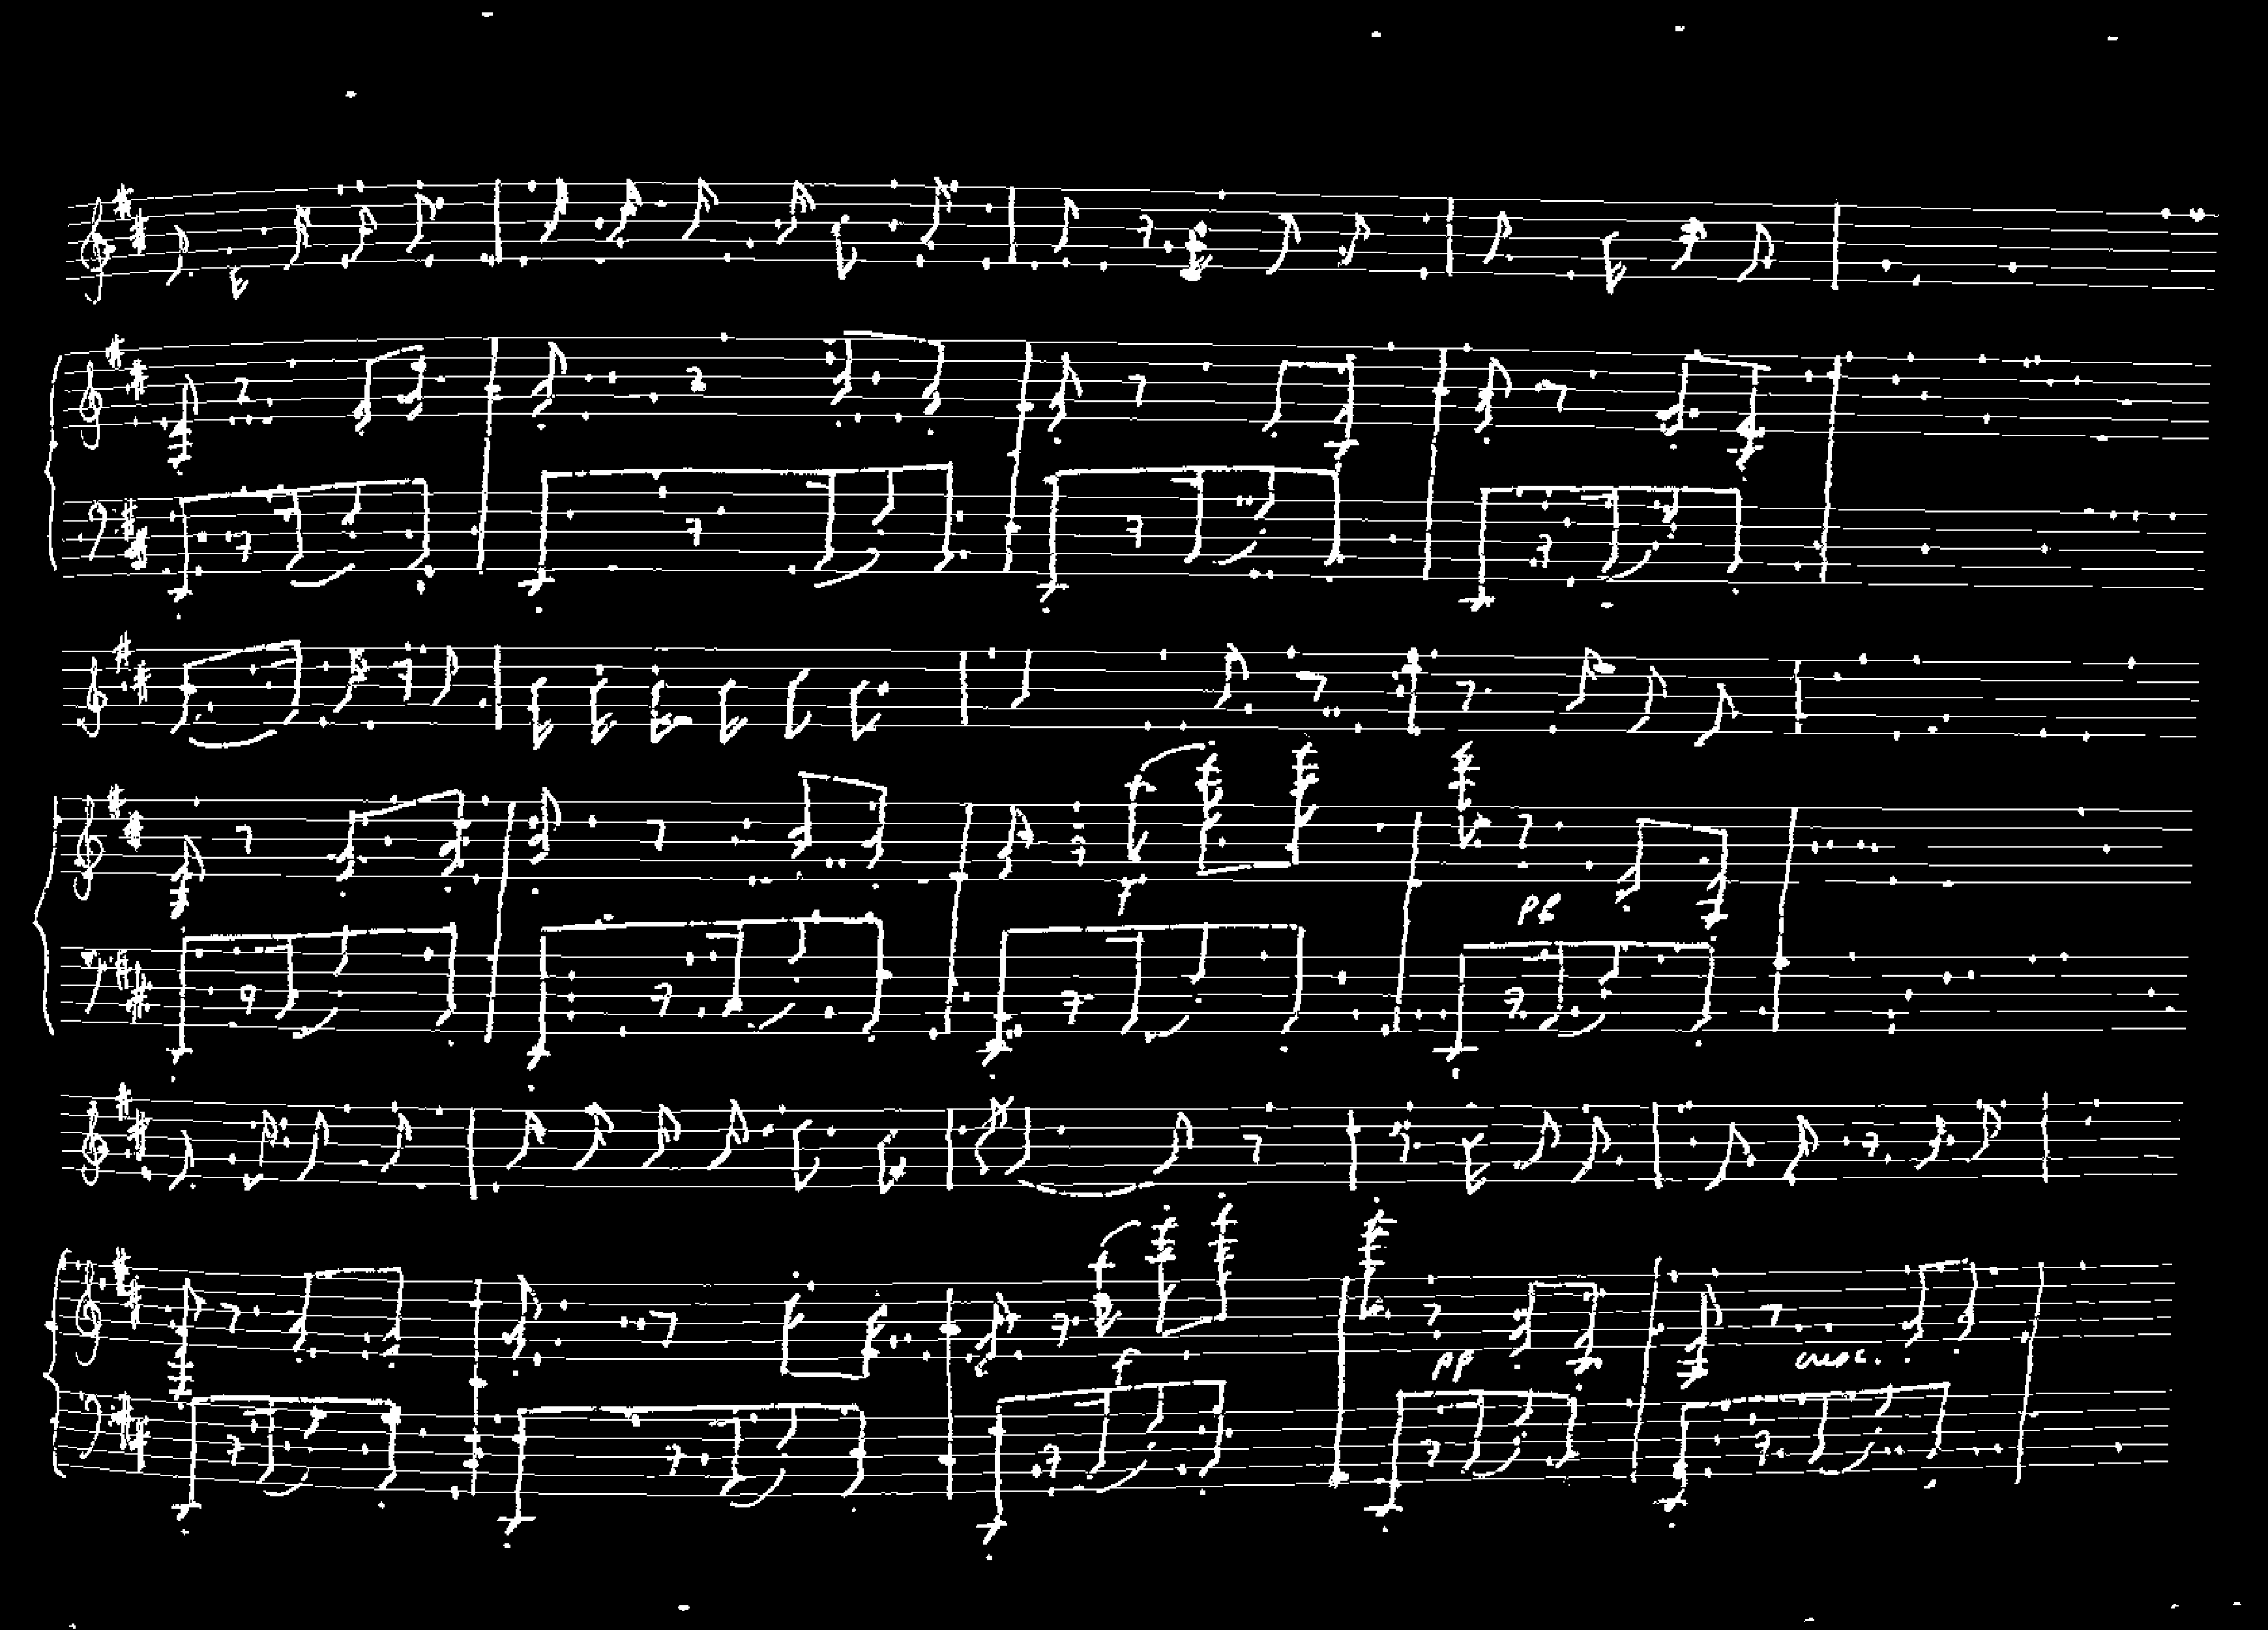 f
pp
f
pp cresc.